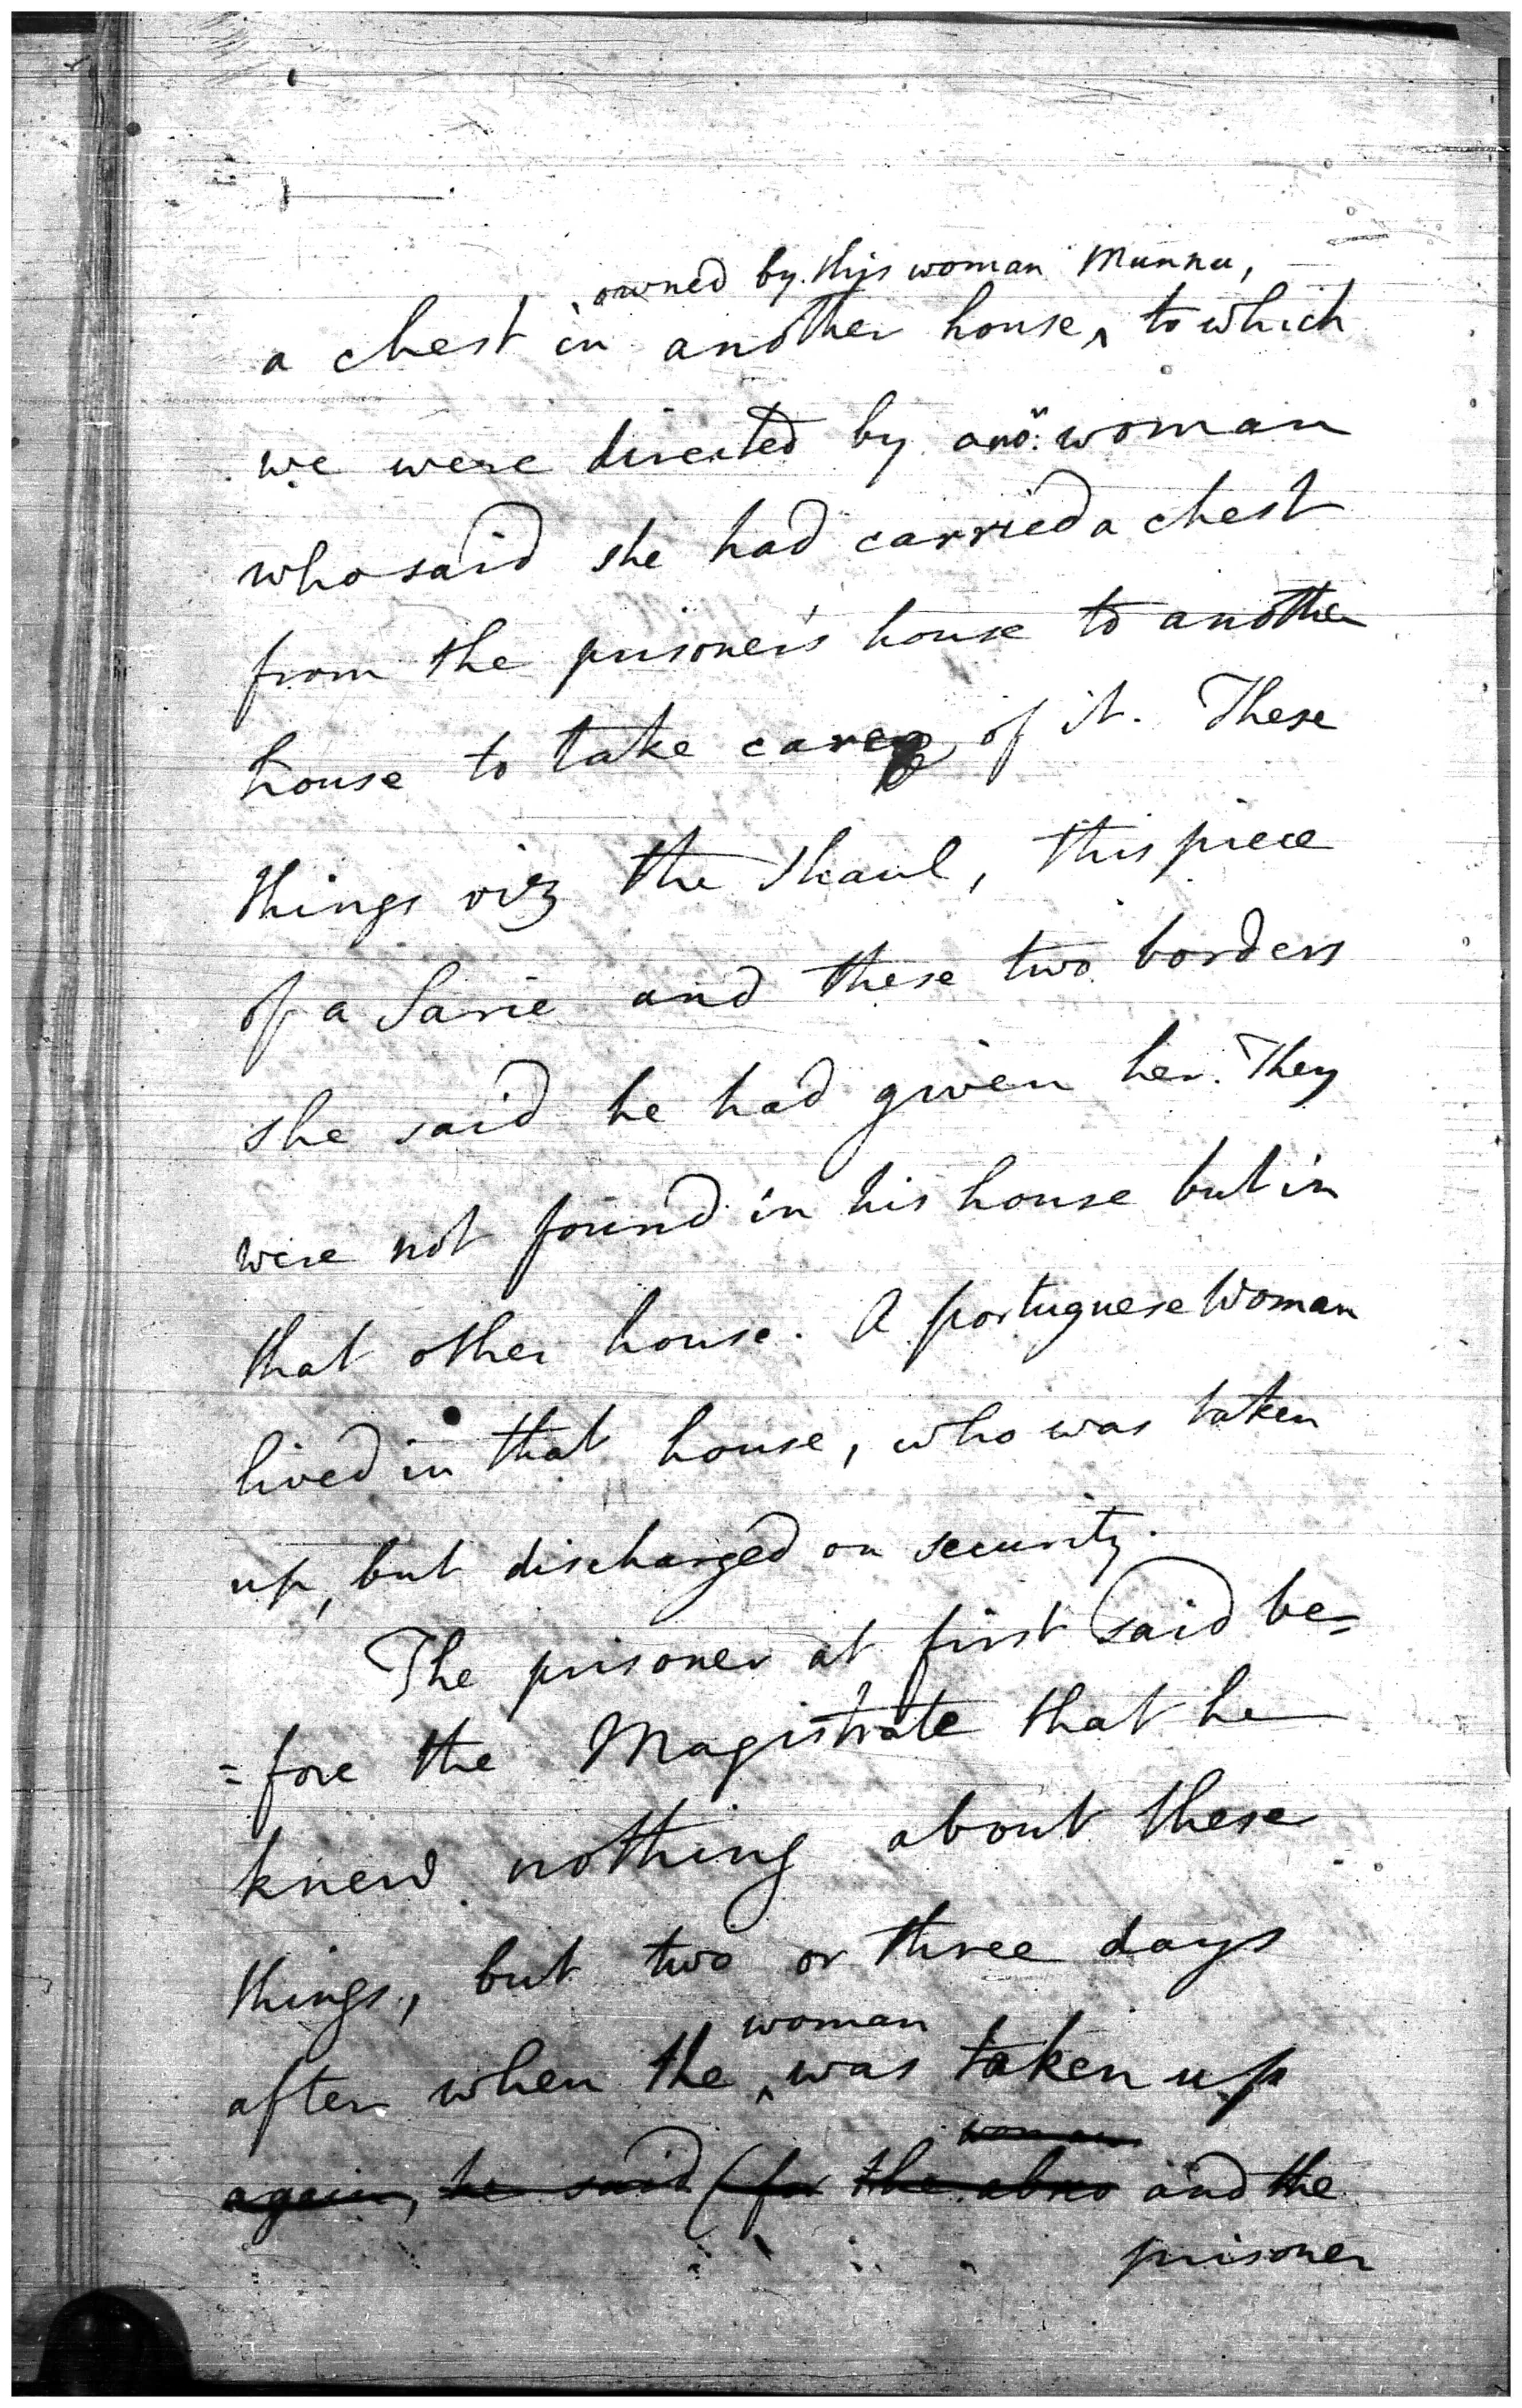 owned by this woman Munnu,
a chest in another house, to which
we were directed by ano.r woman
who said she had carried a chest
from the prisoner's house to another
house to take care of it. These
things viz the Shaul, this piece
of a Sarie and these two borders
she said he had given her. They
were not found in his house but in
that other house. A portuguese Woman
lived in that house, who was taken
up, but discharged on security.
The prisoner at first said be=
=fore the Magistrate that he
knew nothing about these
things, but two or three days
woman
after when the ^ was taken up
woman
again, he said (for the also and the
prisoner